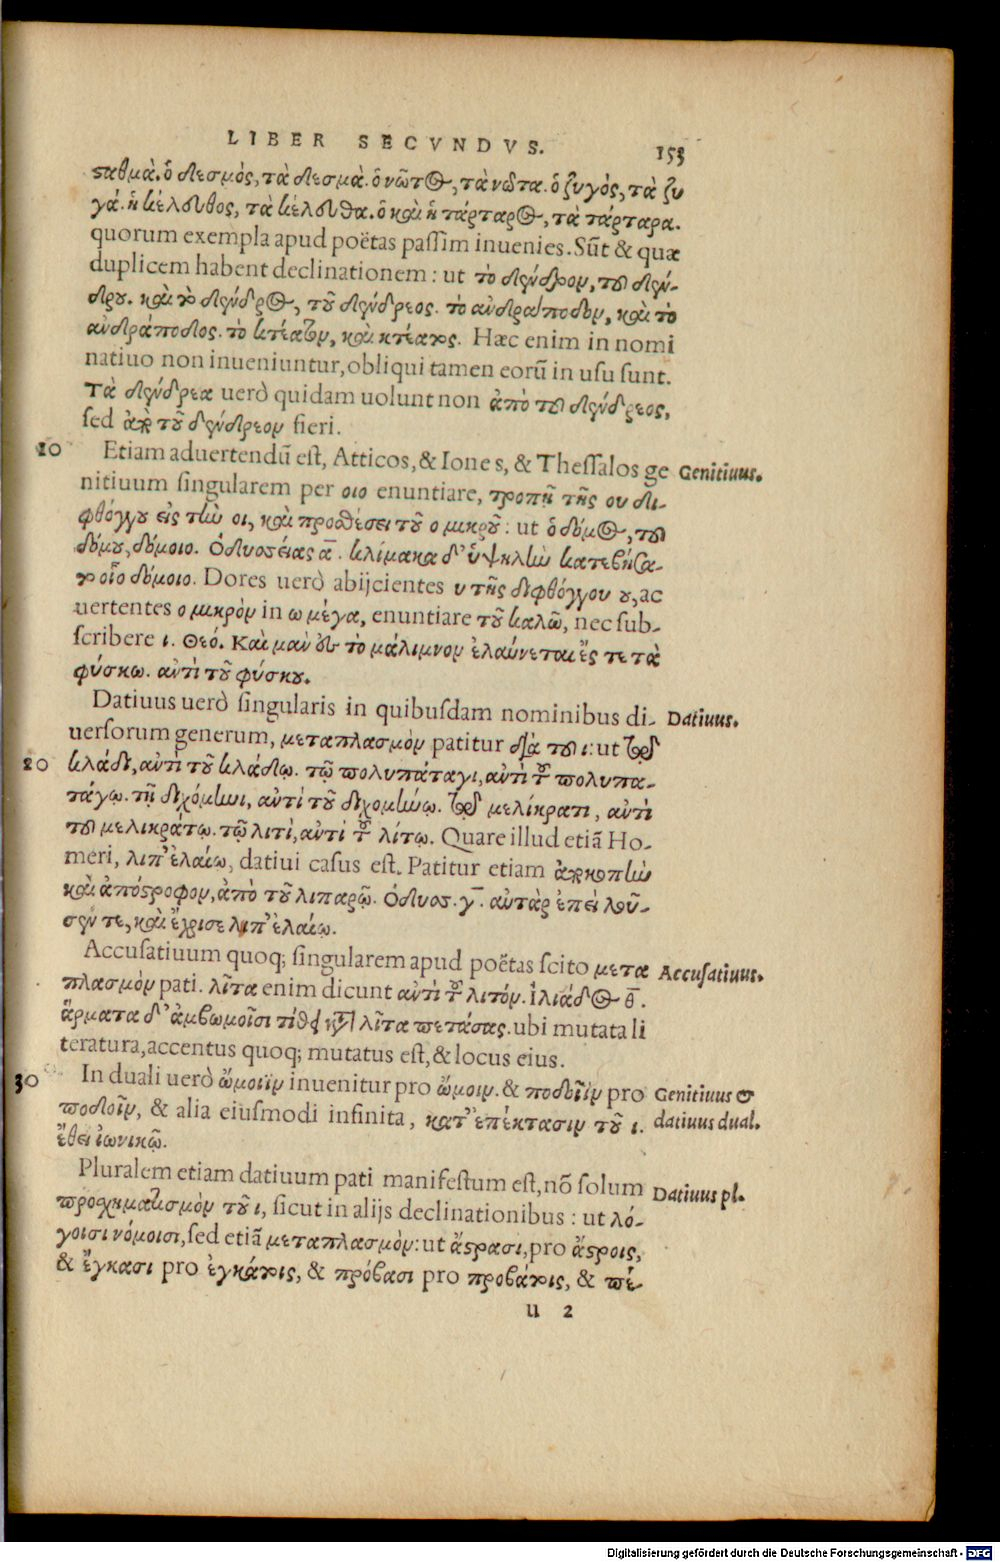 LIBER SECVNDVS. 153
ςαθμὰ. ὁ δεσμός, τὰ δεσμὰ. ὁ νῶτος, τὰ νῶτα. ὁ ζυγός, τὰ ζυ
γά. ἡ κέλευθος, τὰ κέλευθα. ὁ καὶ ἡ τάρταρος, τὰ τάρταρα.
quorum exempla apud poëtas paſſim inuenies. Sūt & quæ
duplicem habent declinationem: ut τὸ δένδρον, τοῦ δέν-
δρου. καὶ τὸ δένδρος, τοῦ δένδρεος. τὸ ἀνδράποδον, καὶ τὸ
ἀνδράποδος. τὸ κτέατον, καὶ κτέατος. Hæc enim in nomi
natiuo non inueniuntur, obliqui tamen eorū in uſu ſunt.
Τὰ δένδρεα uerò quidam uolunt non ἀπὸ τοῦ δένδρεος,
ſed ἀπὸ τοῦ δένδρεον fieri.
10 Etiam aduertendū eſt, Atticos, & Iones, & Theſſalos ge Genitiuus.
nitiuum ſingularem per οιο enuntiare, τροπῇ τῆς ου δι-
φθόγγου εἰς τὴν οι, καὶ προσθέσει τοῦ ο μικροῦ: ut ὁ δόμος, τοῦ
δόμου, δόμοιο. Ὀδυσσείας α. κλίμακα δ' ὑψηλὴν κατεβήσα-
το οἷο δόμοιο. Dores uerò abijcientes υ τῆς διφθόγγου ου, ac
uertentes ο μικρὸν in ω μέγα, enuntiare τοῦ καλῶ, nec ſub-
ſcribere ι. Θεό. Καὶ μαν ὃυ τὸ μάλιμνον ἐλαύνεται ἔς τε τὰ
φύσκω. ἀντὶ τοῦ φύσκου.
Datiuus uerò ſingularis in quibuſdam nominibus di- Datiuus.
uerſorum generum, μεταπλασμὸν patitur διὰ τοῦ ι: ut τῷ
20 κλάδι, ἀντὶ τοῦ κλάδῳ. τῷ πολυπάταγι, ἀντὶ τοῦ πολυπα-
τάγῳ. τῇ διχόμηνι, ἀντὶ τοῦ διχομήνῳ. τῷ μελίκρατι, ἀντὶ
τοῦ μελικράτῳ. τῷ λιτὶ, ἀντὶ τοῦ λίτῳ. Quare illud etiā Ho-
meri, λιπ' ἐλαίῳ, datiui caſus eſt. Patitur etiam ἀποκοπὴν
καὶ ἀπόςροφον, ἀπὸ τοῦ λιπαρῷ. Ὀδυσσ. γ. αὐτὰρ ἐπεὶ λοῦ-
σέν τε, καὶ ἔχρισε λιπ' ἐλαίῳ.
Accuſatiuum quoq; ſingularem apud poëtas ſcito μετα Accuſatiuus.
πλασμὸν pati. λῖτα enim dicunt ἀντὶ τοῦ λιτόν. Ἰλιάδος θ.
ἅρματα δ' ἀμβωμοῖσι τίθει κατὰ λῖτα πετάσας. ubi mutata li
teratura, accentus quoq; mutatus eſt, & locus eius.
30 In duali uerò ὤμοιϊν inuenitur pro ὤμοιν. & ποδοῖϊν pro Genitiuus &
ποδοῖν, & alia eiuſmodi infinita, κατ' ἐπέκτασιν τοῦ ι. datiuus dual.
ἔθει ἰωνικῷ.
Pluralem etiam datiuum pati manifeſtum eſt, nō ſolum Datiuus pl.
προσχηματισμὸν τοῦ ι, ſicut in alijs declinationibus: ut λό-
γοισι νόμοισι, ſed etiā μεταπλασμὸν: ut ἄςρασι, pro ἄςροις,
& ἔγκασι pro ἐγκάτοις, & πρόβασι pro προβάτοις, & πέ-
u 2
Digitalisierung gefördert durch die Deutsche Forschungsgemeinschaft - DFG